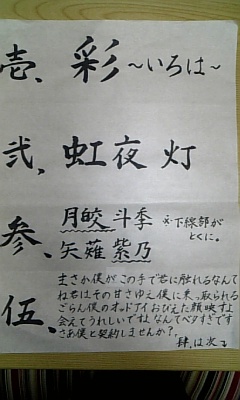 壱、彩～いろは～
弐、虹夜 灯
参、月皎 斗季 ※下線部が
とくに。
矢薙 紫乃
伍、まさか僕がこの手で君に触れるなんて
ね君はその甘さゆえ僕に来っ取られる
ごらん僕のオッドアイおびえた顔映すよ
会えてうれしいですなんてベタすぎです
さあ僕と契約しませんか？
肆、は次